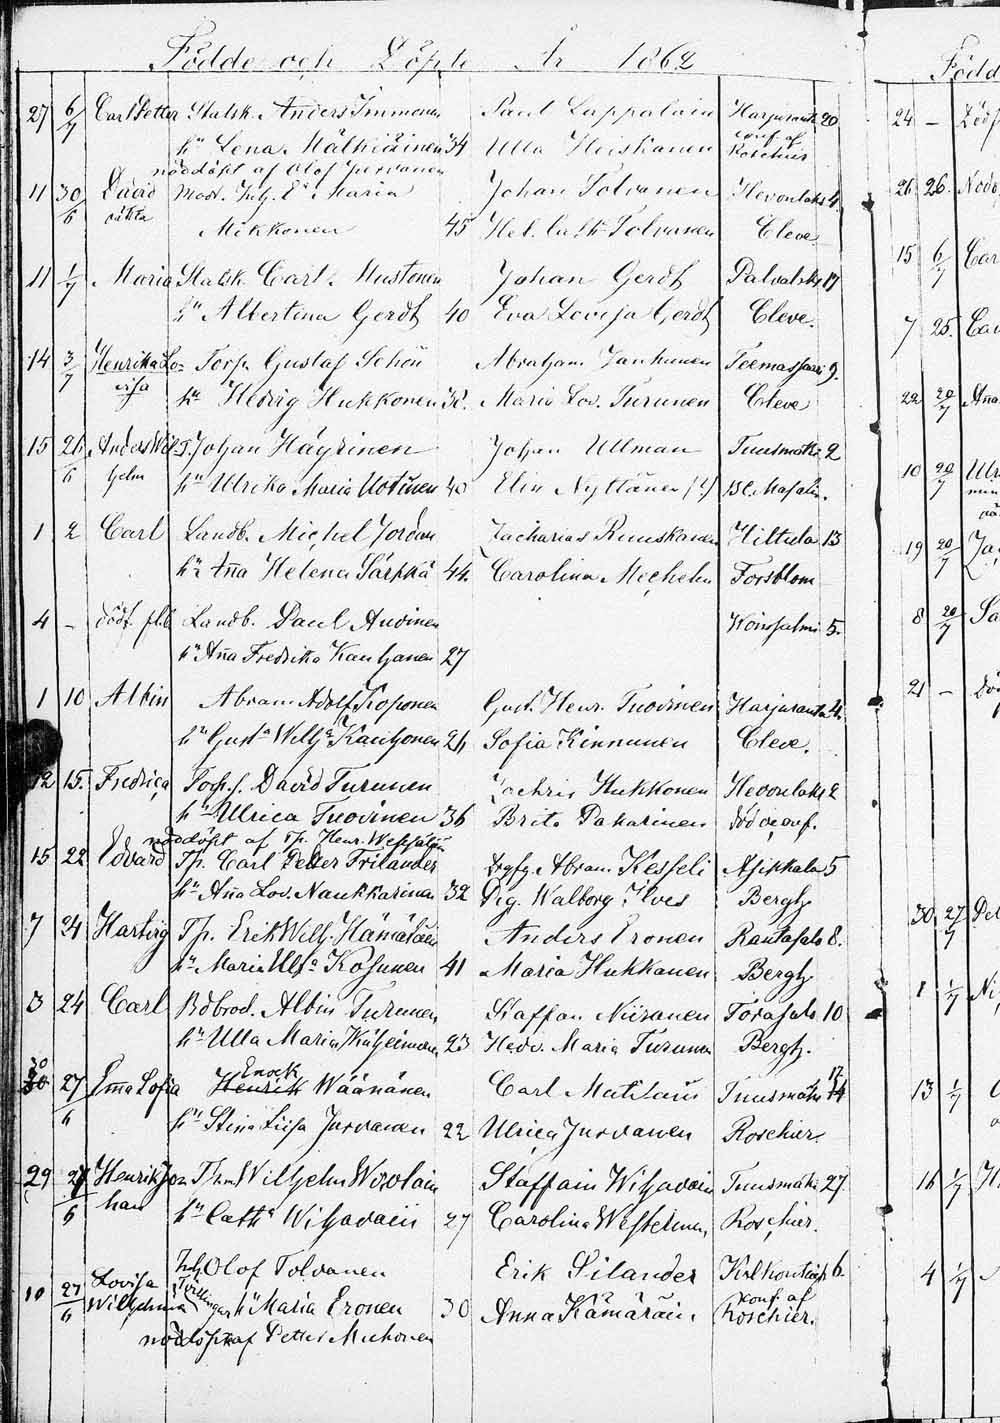 Födde och Döpte År 1862
27 6/7 Carl Petter Statsk. Anders Immonen Paul Lappalain Harjurant 20
hu Lena Mälkiäinen 34 Ulla Heiskanen conf. af Roschier
nöddöpt af Olof Jurvanen
11 30/6 David Mod. Inh. E. Maria Johan Tolvanen Hevonlaks 4.
oäkta Mikkonen 45 Hel. Cath Tolvanen Cleve
11 1/7 Maria Statsk Carl Mustonen Johan Gerdt Palvalaks 17
hu Albertina Gerdt 40 Eva Lovisa Gerdt Cleve.
14 3/7 Henrika Lo= Torp. Gustaf Schön Abraham Janhunen Teemassaari 9.
visa hu Hedvig Hukkonen 32. Maria Lov. Turunen Cleve
15 26/6 Anders Wil= T. Johan Häyrinen Johan Ullman Tuusmäki 2
helm hu Ulrika Maria Uotinen 40 Elin Nyttänen
1 2 Carl Landb. Michel Jordan Zacharias Ruuskanen Hiltula 13
hu Aña Helena Särkkä 44. Carolina Mechelin Forsblom
4 – dödf. Landb. Paul Auvinen Koivsalmi 5.
hu Aña Fredrika Kauhanen 27
1 10 Albin Abram Adolf Koponen Gust. Henr. Tuovinen Harjuranta 4.
hu Gusta Wilha Kauhonen 26 Sofia Kinnunen Cleve.
12 15. Fredrica Torp. s. David Turunen Zachris Hukkonen Hevonlaks 2
hu Ulrica Tuovinen 36 Brita Pakarinen död o conf.
nöddöpt af Tp. Henr. Westfalen
15 22 Edvard Tp. Carl Petter Frilander Drgfg. Abram Kesseli Asikkala 5
hu Aña Lov. Naukkarinen 32 Pig. Walborg Ilves Bergh
7 24 Hartvig Tp. Erik Wilh. Hämäläin Anders Eronen Rantasalo 8.
hu Maria Ulla Kosunen 41 Maria Hukkanen Bergh
3 24 Carl Albin Turunen Staffan Niiranen Torasalo 10
hu Ulla Maria 23 Hedv. Maria Turunen Bergh.
30 27/6 Ema Sofia Henrik Enock Wäänänen Carl Matilain Tuusmäki 17
hu Stina Liisa Jurvanen 22 Ulrica Jurvanen Roschier
29 27/6 Henrik Jo= Wilhelm Staffan Wihavain Tuusmäki 27
han hu Catha Wihavain 27 Carolina Westerinen Roschier.
Inh Olof Tolvanen Erik Silander 6.
10 27/6 Lovisa Wilhelmina Tvillingar hu Maria Eronen 30 Anna Kämäräin conf. af Roschier.
nöddöpt af Petter Muhonen
Född
24 –
26 26.
15 6/7 Car
7 25.
22 20/7 Aña
10 20/7
19 20/7
8 20/7
21 –
30 27/7
1 1/7
13 1/7
16 1/7
4 1/7